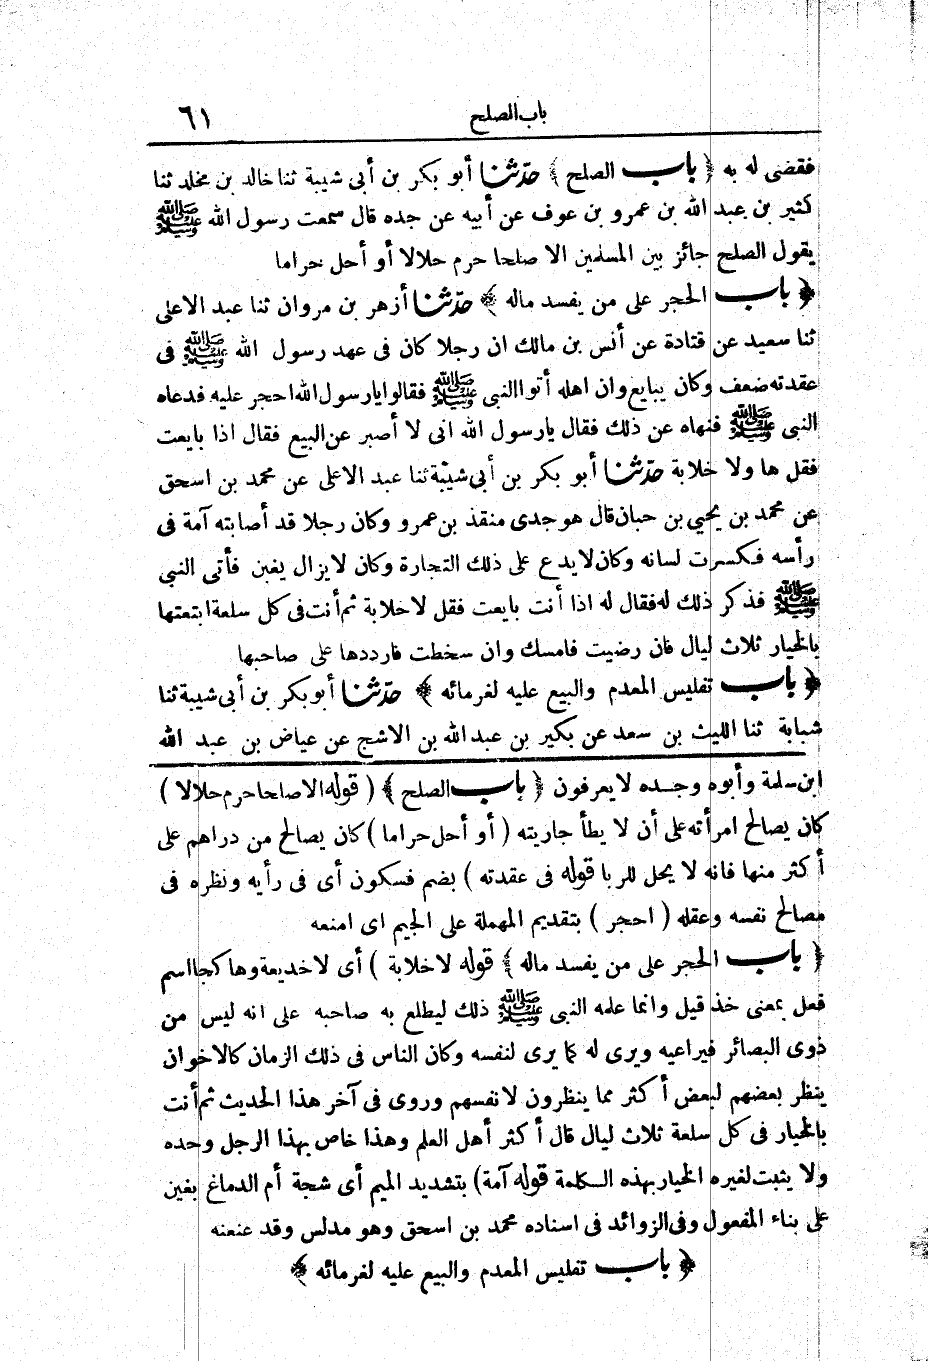 باب الصلح
٦١
فقضى له به ﴿ باب الصلح ﴾ حدّثنا أبو بكر بن أبى شيبة ثنا خالد بن مخلد ثنا
كثير بن عبد الله بن عمرو بن عوف عن أبيه عن جده قال سمعت رسول الله ﷺ
يقول الصلح جائز بين المسلمين الا صلحا حرم حلالا أو أحل حراما
﴿ باب الحجر على من يفسد ماله ﴾ حدّثنا أزهر بن مروان ثنا عبد الاعلى
ثنا سعيد عن قتادة عن أنس بن مالك ان رجلا كان فى عهد رسول الله ﷺ فى
عقدته ضعف وكان يبايع وان اهله أتوا النبى ﷺ فقالوا يا رسول الله احجر عليه فدعاه
النبى ﷺ فنهاه عن ذلك فقال يا رسول الله انى لا أصبر عن البيع فقال اذا بايعت
فقل ها ولا خلابة حدّثنا أبو بكر بن أبى شيبة ثنا عبد الاعلى عن محمد بن اسحق
عن محمد بن يحيي بن حبان قال هو جدى منقذ بن عمرو وكان رجلا قد أصابته آمة فى
رأسه فكسرت لسانه وكان لا يدع على ذلك التجارة وكان لا يزال يغبن فأتى النبي
ﷺ فذكر ذلك له فقال له اذا أنت بايعت فقل لا خلابة ثم أنت فى كل سلعة ابتعتها
بالخيار ثلاث ليال فان رضيت فامسك وان سخطت فارددها على صاحبها
﴿ باب تفليس المعدم والبيع عليه لغرمائه ﴾ حدّثنا أبو بكر بن أبى شيبة ثنا
شبابة ثنا الليث بن سعد عن بكير بن عبد الله بن الاشج عن عياض بن عبد الله
ابن سلمة وأبوه وجده لا يعرفون ﴿ باب الصلح ﴾ ( قوله الا صلحا حرم حلالا )
كان يصالح امرأته على أن لا يطأ جاريته ( أو أحل حراما ) كان يصالح من دراهم على
أكثر منها فانه لا يحل للربا قوله فى عقدته ) بضم فسكون أى فى رأيه ونظره فى
مصالح نفسه وعقله ( احجر ) بتقديم المهملة على الجيم اى امنعه
﴿ باب الحجر على من يفسد ماله ﴾ قوله لا خلابة ) أى لا خديعة وها كجا اسم
فعل بمعنى خذ قيل وانما علمه النبى ﷺ ذلك ليطلع به صاحبه على انه ليس من
ذوى البصائر فيراعيه ويرى له كما يرى لنفسه وكان الناس فى ذلك الزمان كالاخوان
ينظر بعضهم لبعض أكثر مما ينظرون لانفسهم وروى فى آخر هذا الحديث ثم أنت
بالخيار فى كل سلعة ثلاث ليال قال أكثر أهل العلم وهذا خاص بهذا الرجل وحده
ولا يثبت لغيره الخيار بهذه الكلمة قوله آمة) بتشديد الميم أى شجة أم الدماغ يغبن
على بناء المفعول وفى الزوائد فى اسناده محمد بن اسحق وهو مدلس وقد عنعنه
﴿ باب تفليس المعدم والبيع عليه لغرمائه ﴾